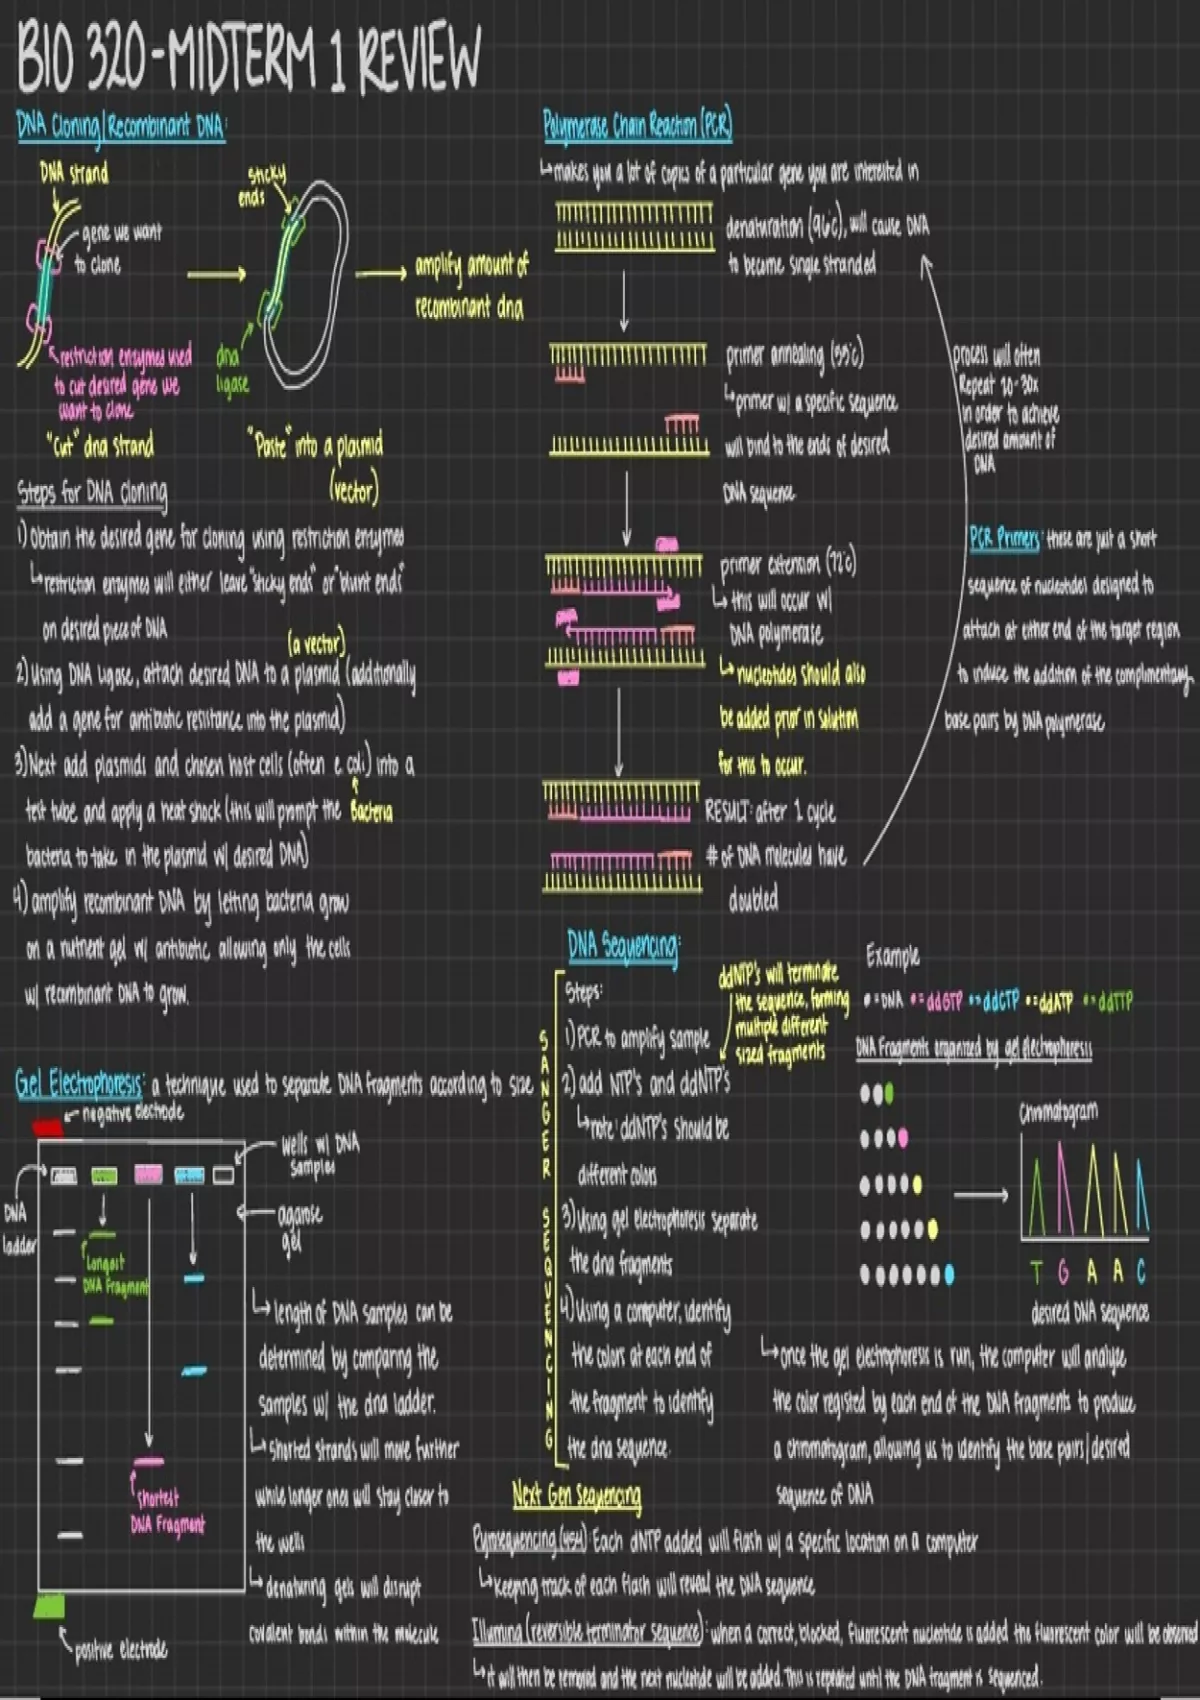 BIO 320-MIDTERM 1 REVIEW
DNA Cloning/Recombinant DNA:
DNA strand
gene we want
to clone
restriction enzymes used
to cut desired gene we
want to clone
"Cut" dna strand
sticky
ends
dna
ligase
"Paste" into a plasmid
(vector)
amplify amount of
recombinant dna
Steps for DNA cloning
1) Obtain the desired gene for cloning using restriction enzymes
restriction enzymes will either leave "sticky ends" or "blunt ends"
on desired piece of DNA
(a vector)
2) Using DNA Ligase, attach desired DNA to a plasmid (additionally
add a gene for antibiotic resistance into the plasmid)
3) Next add plasmids and chosen host cells (often e. coli) into a
test tube and apply a heat shock (this will prompt the
Bacteria
bacteria to take in the plasmid w/ desired DNA)
4) amplify recombinant DNA by letting bacteria grow
on a nutrient gel w/ antibiotic allowing only the cells
w/ recombinant DNA to grow.
Gel Electrophoresis: a technique used to separate DNA fragments according to size
negative electrode
wells w/ DNA
samples
DNA
ladder
agarose
gel
Longest
DNA Fragment
Shortest
DNA Fragment
positive electrode
length of DNA samples can be
determined by comparing the
samples w/ the dna ladder.
shorted strands will move further
while longer ones will stay closer to
the wells
denaturing gels will disrupt
covalent bonds within the molecule
Polymerase Chain Reaction (PCR)
makes you a lot of copies of a particular gene you are interested in
denaturation (96°c), will cause DNA
to become single stranded
primer annealing (55°c)
primer w/ a specific sequence
will bind to the ends of desired
DNA sequence
primer extension (72°c)
this will occur w/
DNA polymerase
nucleotides should also
be added prior in solution
for this to occur.
RESULT: after 1 cycle
# of DNA molecules have
doubled
process will often
Repeat 20-30x
in order to achieve
desired amount of
DNA
PCR Primers: these are just a short
sequence of nucleotides designed to
attach at either end of the target region
to induce the addition of the complimentary
base pairs by DNA polymerase
DNA Sequencing:
SANGER SEQUENCING
Steps:
1) PCR to amplify sample
2) add NTP's and ddNTP's
note: ddNTP's should be
different colors
3) Using gel electrophoresis separate
the dna fragments
4) Using a computer, identify
the colors at each end of
the fragment to identify
the dna sequence.
ddNTP's will terminate
the sequence, forming
multiple different
sized fragments
Example
= DNA = ddGTP = ddCTP = ddATP = ddTTP
DNA Fragments organized by gel electrophoresis
Chromatogram
T G A A C
desired DNA sequence
Once the gel electrophoresis is run, the computer will analyse
the color registed by each end of the DNA fragments to produce
a chromatogram, allowing us to identify the base pairs/desired
sequence of DNA
Next Gen Sequencing
Pyrosequencing (454): Each dNTP added will flash w/ a specific location on a computer
Keeping track of each flash will reveal the DNA sequence
Illumina (reversible terminator sequence): when a correct, blocked, fluorescent nucleotide is added the fluorescent color will be observed
it will then be removed and the next nucleotide will be added. This is repeated until the DNA fragment is sequenced.